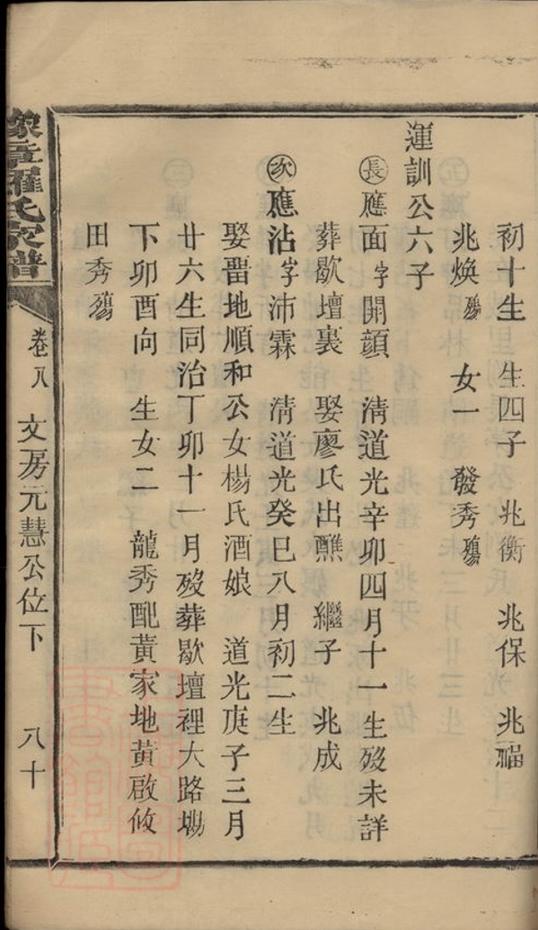 初十生 生四子 兆衡 兆保 兆福
兆煥殤 女一 發秀殤
運訓公六子
長應面字開顔 清道光辛卯四月十一生歿未詳
葬歇壇裏 娶廖氏出醮 繼子 兆成
次應沾字沛霖 清道光癸巳八月初二生
娶畱地順和公女楊氏酒娘 道光庚子三月
廿六生同治丁卯十一月歿葬歇壇裡大路塝
下卯酉向 生女二 龍秀配黃家地黃啟攸
田秀殤
豫章羅氏家譜 卷八 文房元慧公位下 八十